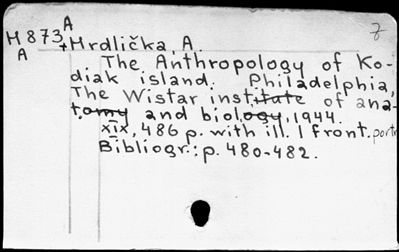 A
M 873
+ Hrdlička, A.
A
The Anthropology of Ko-
diak island. Philadelphia,
The Wistar institute of ana-
tomy and biology, 1944.
XIX, 486 p. with ill. 1 front. portr
Bibliogr.: p. 480-482.